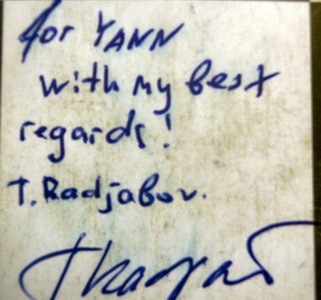 for YANN
with my best
regards!
T. Radjabov.